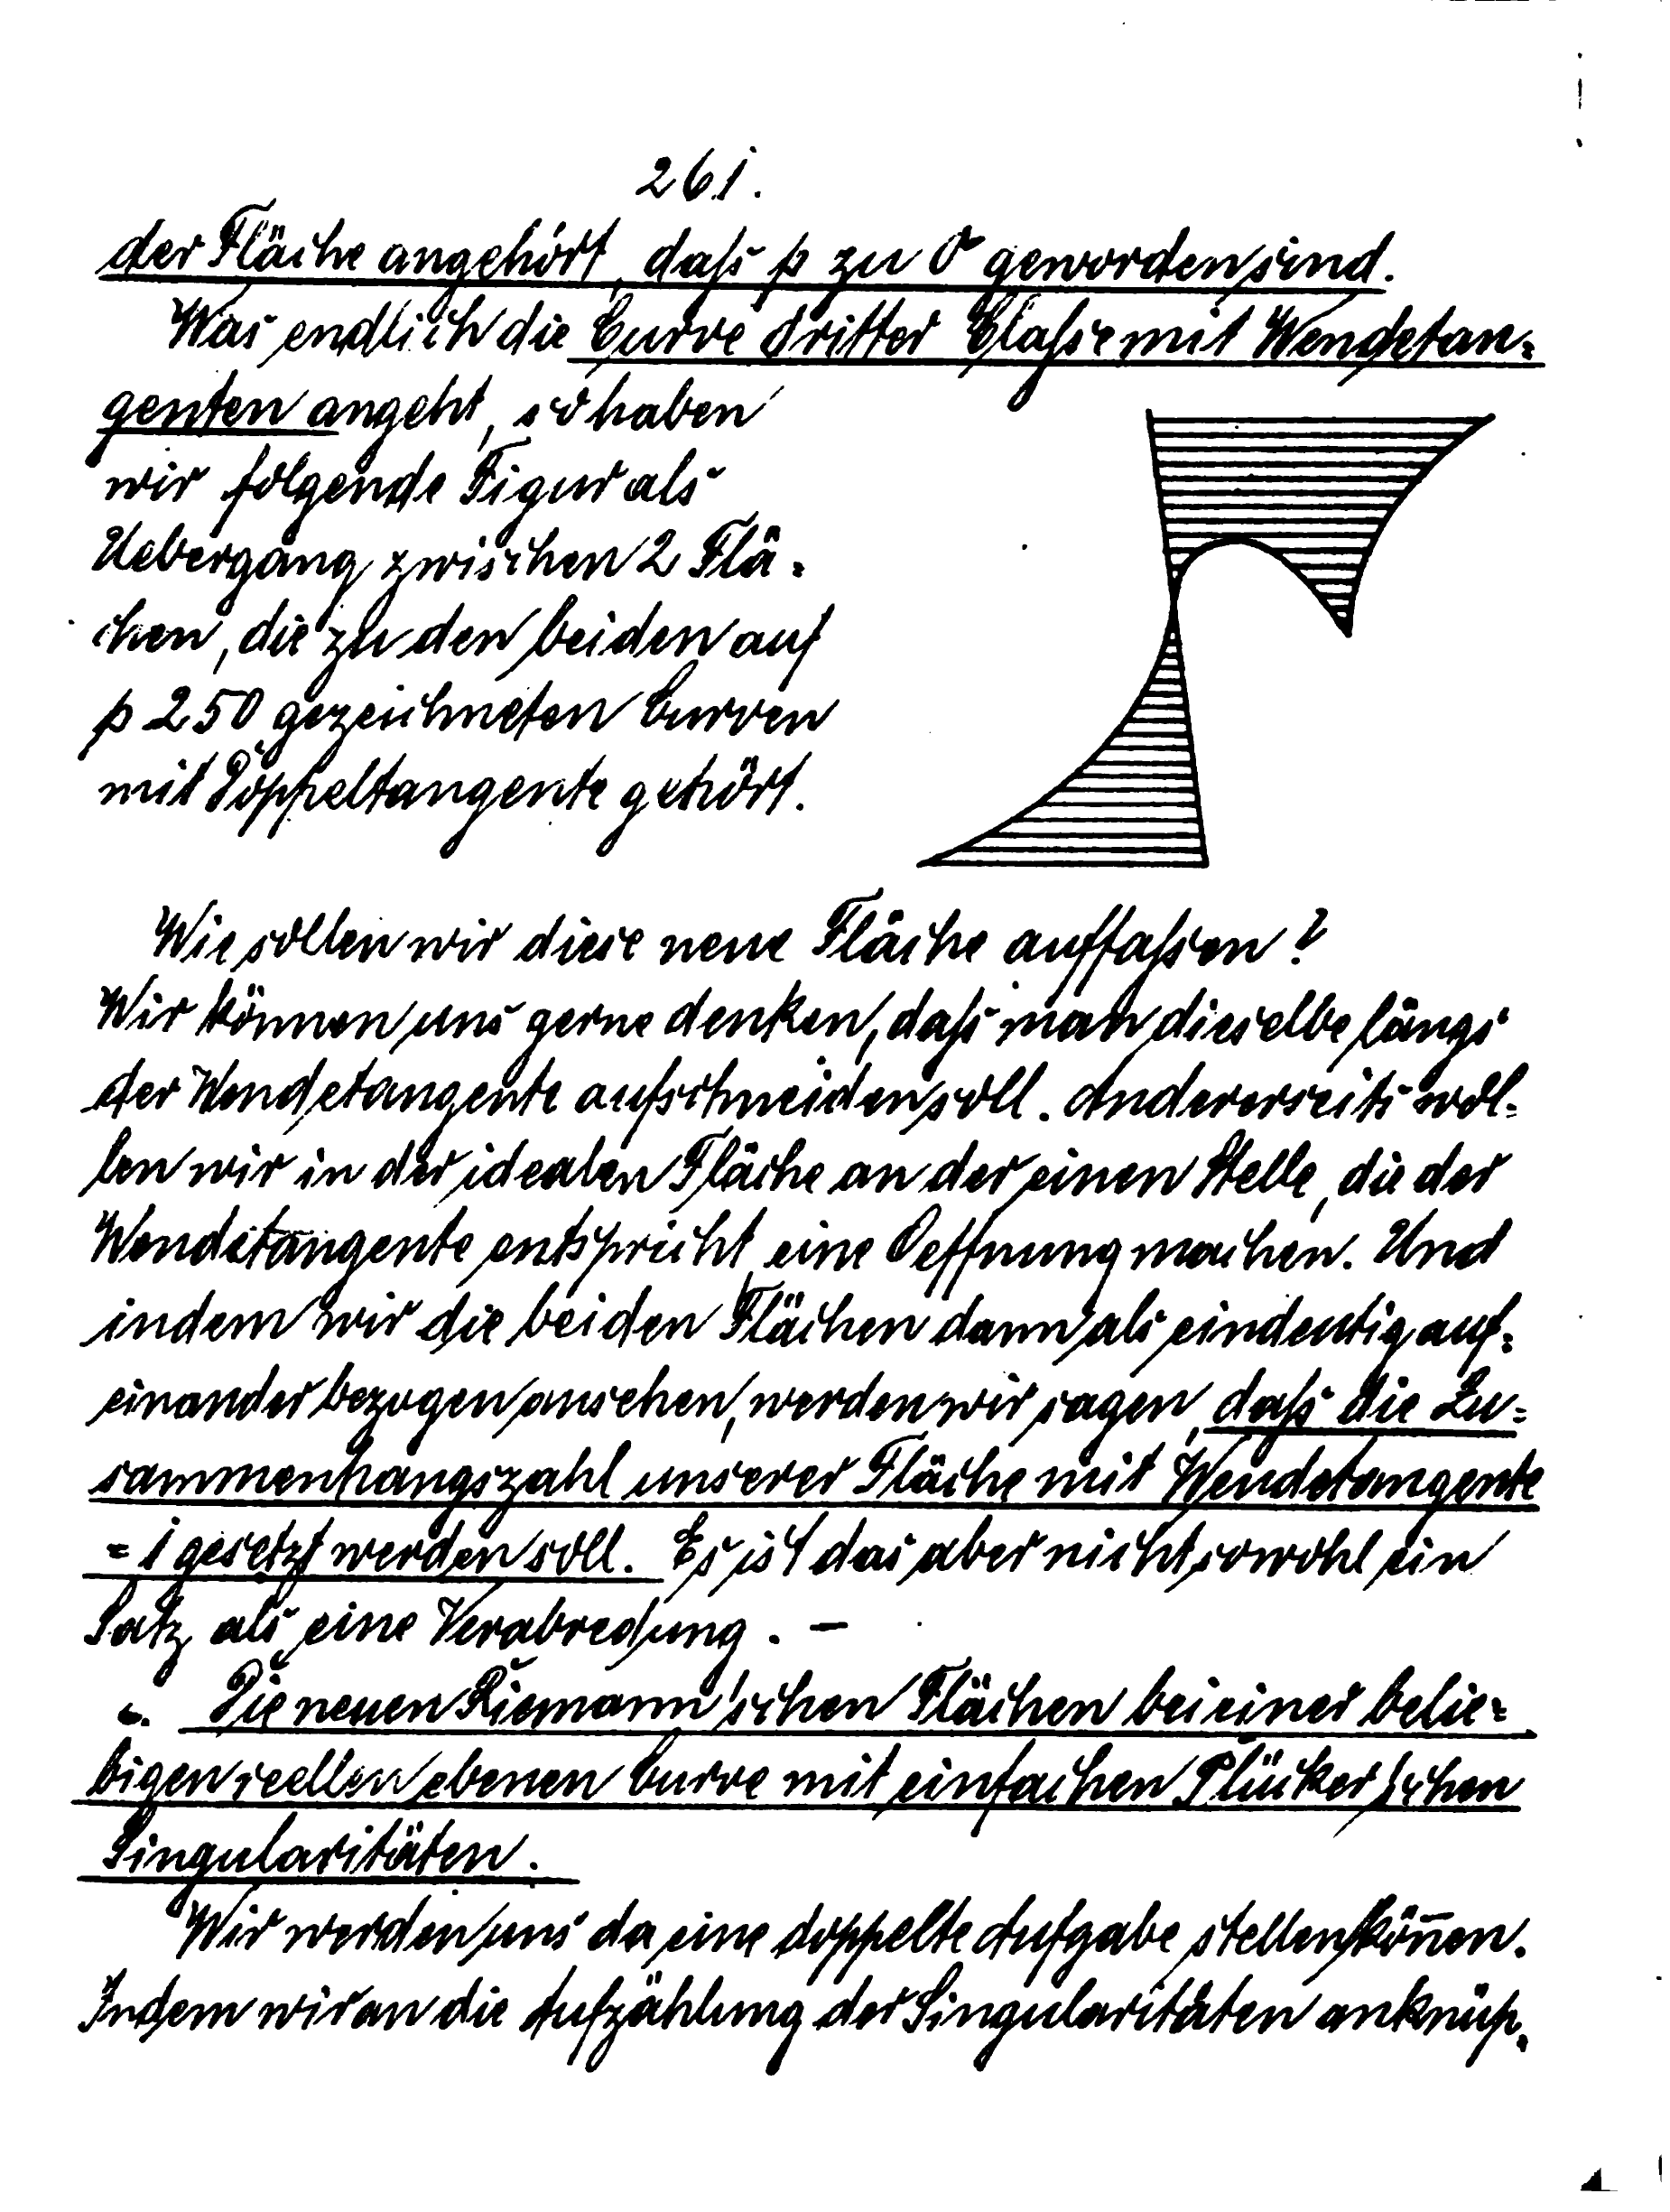 261.
der Fläche angehört, daß p zu 0 geworden sind.
Was endlich die Curve dritter Claſse mit Wendetan=
genten angeht, so haben
wir folgende Figur als
Uebergang zwischen 2 Flä=
chen, die zu den beiden auf
p 250 gezeichneten Curven
mit Doppeltangente gehört.
Wie sollen wir diese neue Fläche auffaßen?
Wir können uns gerne denken, daß man dieselbe längs
der Wendetangente aufschneiden soll. Andererseits wol=
len wir in der idealen Fläche an der einen Stelle, die der
Wendetangente entspricht, eine Oeffnung machen. Und
indem wir die beiden Flächen dann als eindeutig auf=
einander bezogen ansehen, werden wir sagen, daß die Zu=
sammenhangszahl unserer Fläche mit Wendetangente
= 1 gesetzt werden soll. Es ist das aber nicht sowohl ein
Satz als eine Verabredung. –
c. Die neuen Riemann'schen Flächen bei einer belie=
bigen reellen ebenen Curve mit einfachen Plücker'schen
Singularitäten.
Wir werden uns da eine doppelte Aufgabe stellen köñen.
Indem wir an die Aufzählung der Singularitäten anknüp=